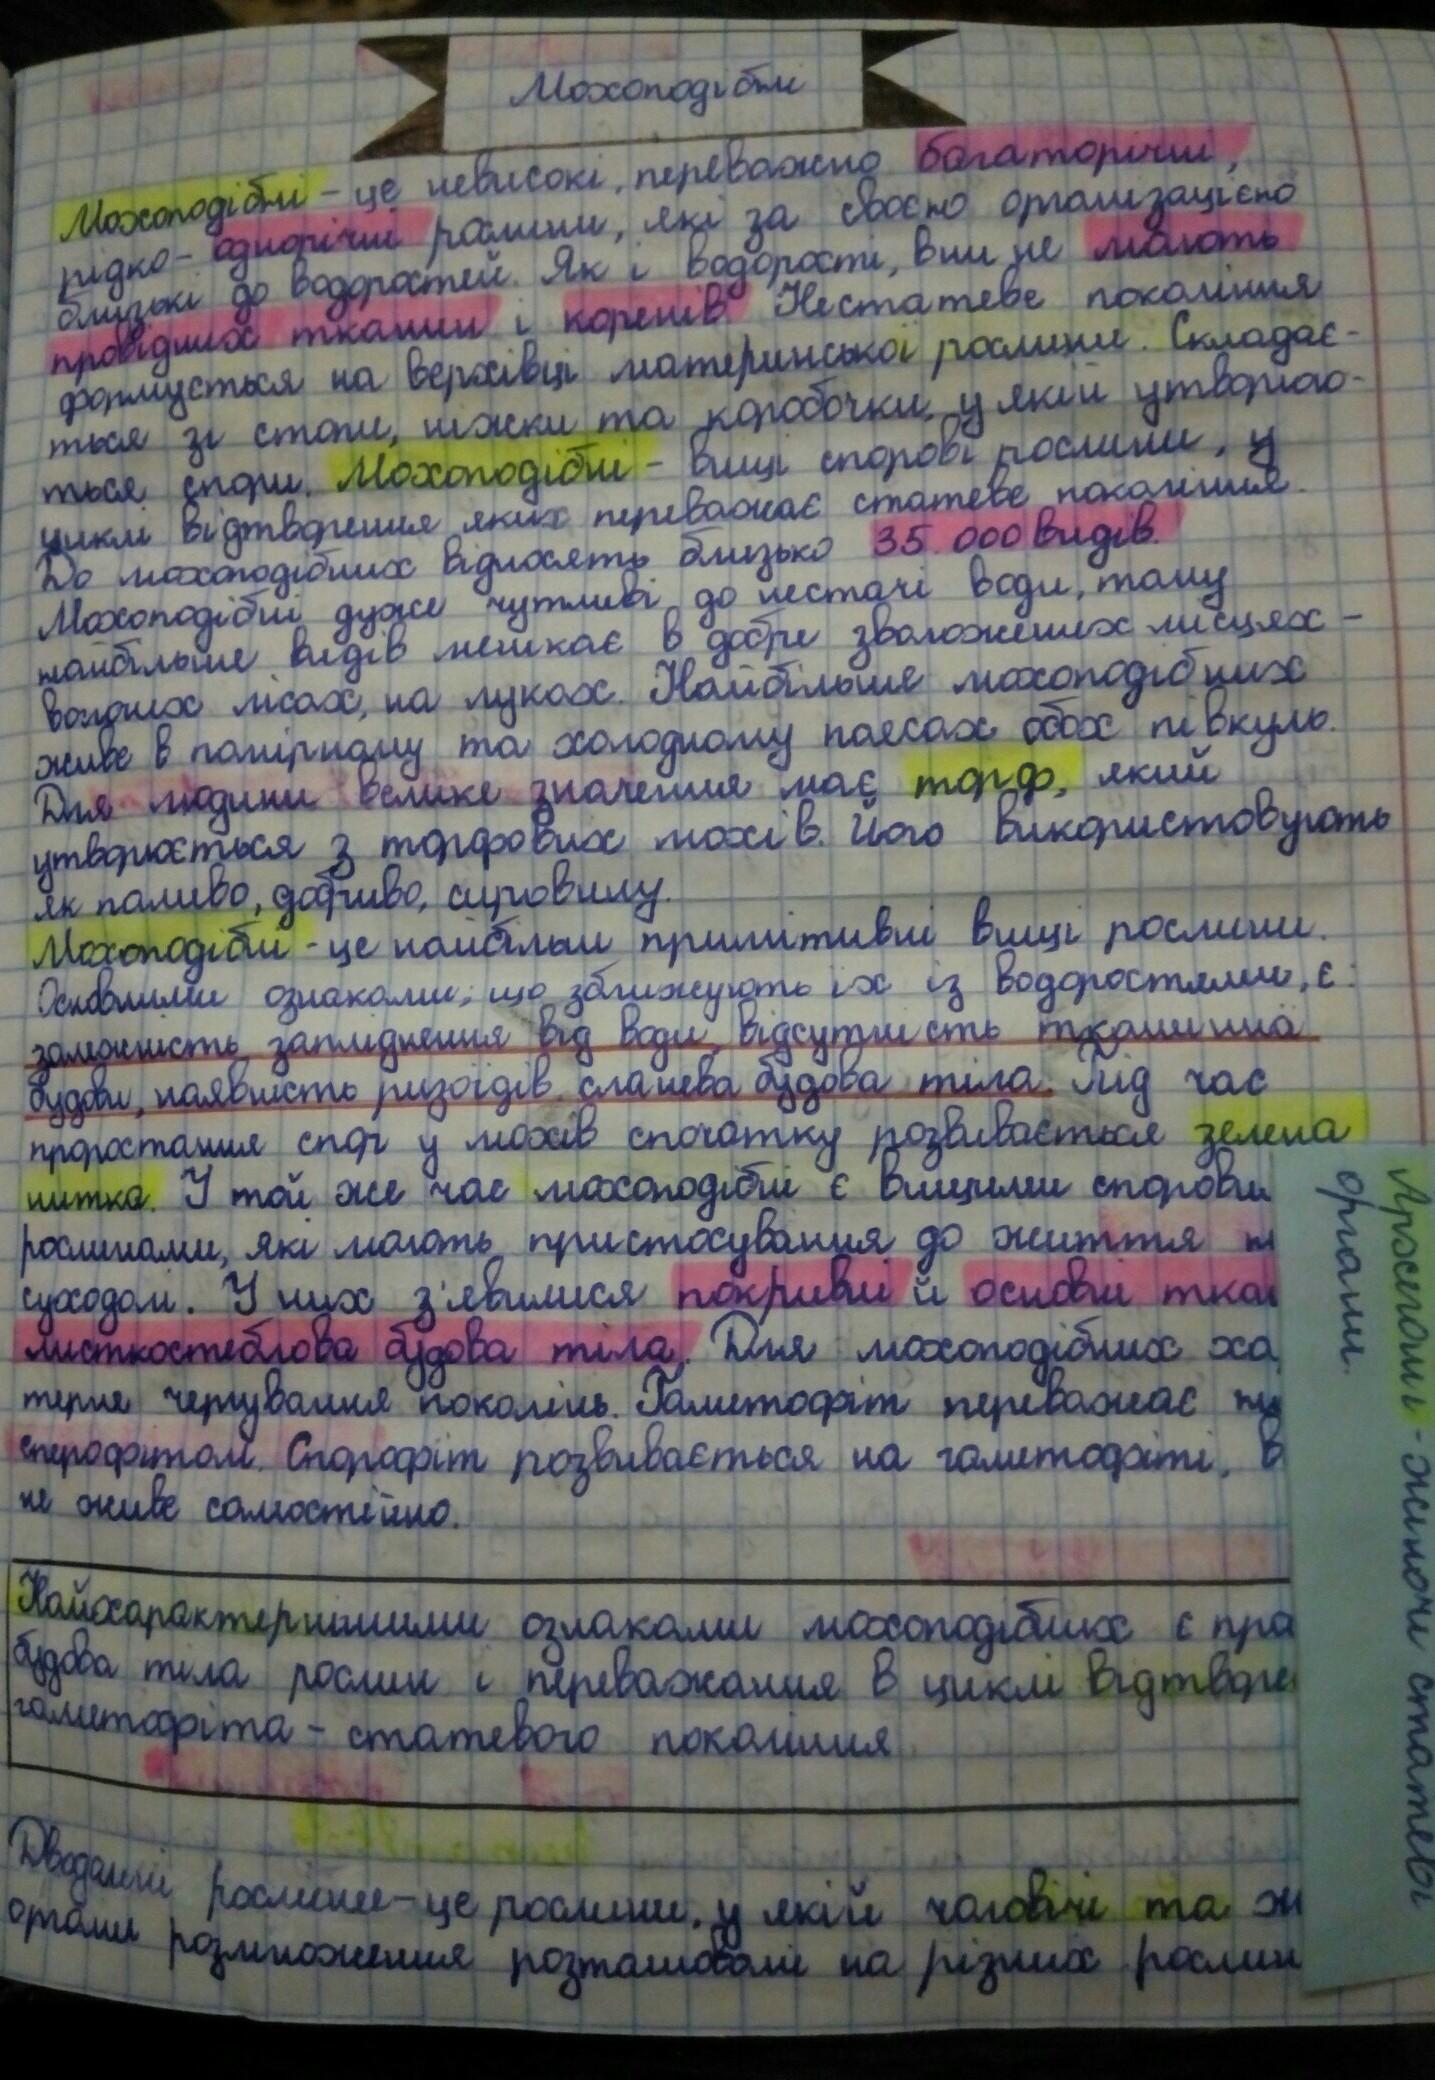 Мохоподібні
Мохоподібні - це невисокі, переважно багаторічні,
рідко - однорічні рослини, які за своєю організацією
близькі до водоростей. Як і водорості, вони не мають
провідних тканин і коренів. Нестатеве покоління
формується на верхівці материнської рослини. Складає-
ться зі стопи, ніжки та коробочки, у якій утворюю-
ться спори. Мохоподібні - вищі спорові рослини, у
циклі відтворення яких переважає статеве покоління.
До мохоподібних відносять близько 35 000 видів.
Мохоподібні дуже чутливі до нестачі води, тому
найбільше видів мешкає в добре зволожених місцях -
вологих лісах, на луках. Найбільше мохоподібних
живе в помірному та холодному поясах обох півкуль.
Для людини велике значення має торф, який
утворюється з торфових мохів. Його використовують
як паливо, добриво, сировину.
Мохоподібні - це найбільш примітивні вищі рослини.
Основними ознаками, що зближують їх із водоростями, є:
залежність запліднення від води, відсутність тканинної
будови, наявність ризоїдів, сланева будова тіла. Під час
проростання спор у мохів спочатку розвивається зелена
нитка. У той же час мохоподібні є вищими спорови
рослинами, які мають пристосування до життя н
суходолі. У них з'явилися покривні й основні ткан
листкостеблова будова тіла. Для мохоподібних ха
терне чергування поколінь. Гаметофіт переважає на
спорофітом. Спорофіт розвивається на гаметофіті, в
не живе самостійно.
Найхарактернішими ознаками мохоподібних є про
будова тіла рослин і переважання в циклі відтворе
гаметофіта - статевого покоління
Дводомні рослини - це рослини, у якій чоловічі та ж
органи розмноження розташовані на різних рослин
Архегонії - жіночі статеві
органи.